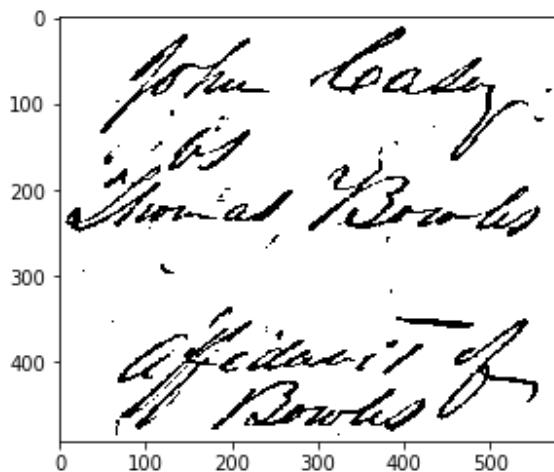 0
100
200
300
400
John Casey
vs
Thomas Bowles
Affidavit of
Bowles
0 100 200 300 400 500